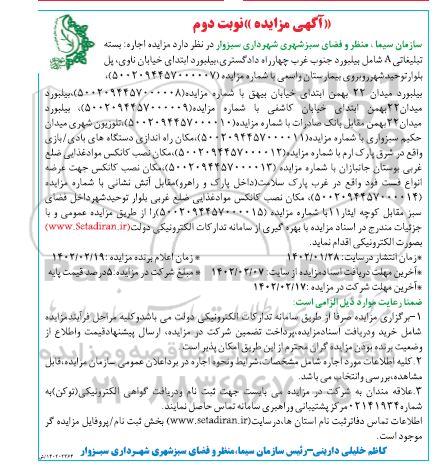 «آگهی مزایده» نوبت دوم
سازمان سیما، منظر و فضای سبزشهری شهرداری سبزوار در نظر دارد مزایده اجاره: بسته
تبلیغاتی A شامل بیلبورد جنوب غرب چهارراه دادگستری،بیلبورد ابتدای خیابان ناوی، پل
بلوارتوحیدشهرروبروی بیمارستان واسعی با شماره مزایده (۵۰۰۲۰۹۴۴۵۷۰۰۰۰۰۷)،
بیلبورد میدان ۲۲ بهمن ابتدای خیابان بیهق با شماره مزایده(۵۰۰۲۰۹۴۴۵۷۰۰۰۰۰۸)،بیلبورد
میدان۲۲بهمن ابتدای خیابان کاشفی با شماره مزایده(۵۰۰۲۰۹۴۴۵۷۰۰۰۰۰۹)، بیلبورد
میدان۲۲بهمن مقابل بانک صادرات با شماره مزایده(۵۰۰۲۰۹۴۴۵۷۰۰۰۰۱۰)،تلوزیون شهری میدان
حکیم سبزواری با شماره مزایده(۵۰۰۲۰۹۴۴۵۷۰۰۰۰۱۱)،مکان راه اندازی دستگاه های بادی/بازی
واقع در شرق پارک ارم با شماره مزایده(۵۰۰۲۰۹۴۴۵۷۰۰۰۰۱۲)،مکان نصب کانکس موادغذایی ضلع
غربی بوستان جانبازان با شماره مزایده(۵۰۰۲۰۹۴۴۵۷۰۰۰۰۱۳)، مکان نصب کانکس جهت عرضه
انواع فست فود واقع در غرب پارک سلامت(داخل پارک و راهرو)مقابل آتش نشانی با شماره مزایده
(۵۰۰۲۰۹۴۴۵۷۰۰۰۰۱۴)، مکان نصب کانکس موادغذایی ضلع غربی بلوار توحیدشهرداخل فضای
سبز مقابل کوچه ایثار۱۱با شماره مزایده (۵۰۰۲۰۹۴۴۵۷۰۰۰۰۱۵)را از طریق مزایده عمومی و با
جزئیات مندرج در اسناد مزایده با بهره گیری از سامانه تدارکات الکترونیکی دولت(www.Setadiran.ir)
بصورت الکترونیکی اقدام نماید.
*زمان انتشار در سایت: ۱۴۰۲/۰۱/۲۸ * زمان اعلام برنده مزایده :۱۴۰۲/۰۲/۱۹
*آخرین مهلت دریافت اسنادمزایده از سایت: ۱۴۰۲/۰۲/۰۷ * مبلغ شرکت در مزایده:۵درصد قیمت پایه
*آخرین مهلت شرکت در مزایده :۱۴۰۲/۰۲/۱۷
ضمنا رعایت موارد ذیل الزامی است:
۱-برگزاری مزایده صرفا از طریق سامانه تدارکات الکترونیکی دولت می باشدوکلیه مراحل فرآیندمزایده
شامل خرید ودریافت اسنادمزایده،پرداخت تضمین شرکت در مزایده، ارسال پیشنهادقیمت واطلاع از
وضعیت برنده بودن مزایده گران محترم از این طریق امکان پذیر است.
۲.کلیه اطلاعات مورد اجاره شامل مشخصات،شرایط ونحوه اجاره در برداعلان عمومی سازمان مزایده،قابل
مشاهده،بررسی وانتخاب می باشد.
۳.علاقه مندان به شرکت در مزایده می بایست جهت ثبت نام ودریافت گواهی الکترونیکی(توکن)به
شماره۰۲۱۴۱۹۳۴مرکزپشتیبانی وراهبری سامانه تماس حاصل نمایند.
اطلاعات تماس دفاترثبت نام استان ها،درسایت(www.setadiran.ir) بخش ثبت نام/پروفایل مزایده گر
موجود است.
کاظم خلیلی دارینی-رئیس سازمان سیما،منظر و فضای سبزشهری شهرداری سبزوار